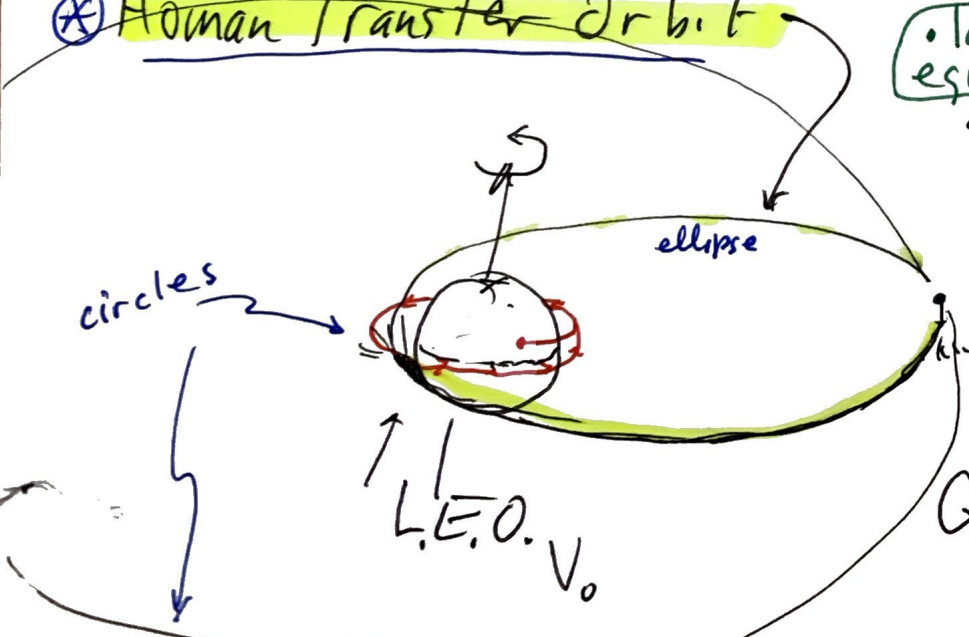 ⊛ Homan Transfer Orbit
ellipse
circles
L.E.O.
V₀